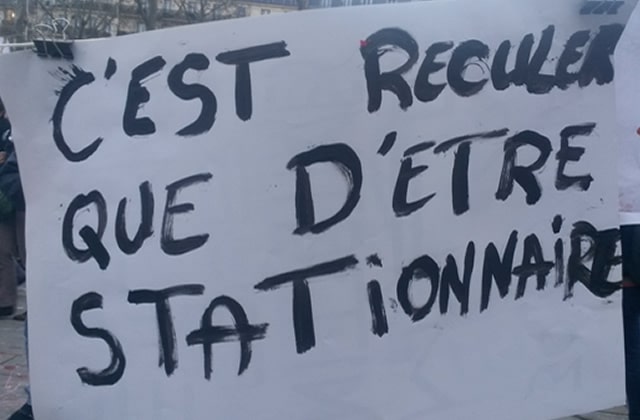 C'EST RECULER
QUE D'ETRE
STATiONNAiRE